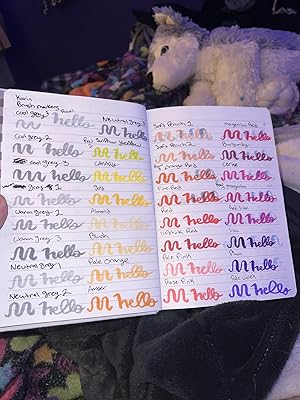 Karin
Brush markers
cool grey 3
hello
Neutral grey 3
hello
cool grey 2
hello
hello
cool grey 3
Canary
hello
hello
grey 1
Gold
hello
hello
Warm grey 2
Almond
hello
hello
Warm grey 3
Blush
hello
hello
Neutral grey 1
Pale Orange
hello
hello
Neutral grey 2
Amber
hello
hello
Soft Peach 1
Magenta Red
hello
hello
Soft Peach 2
Burgundy
hello
hello
Cerise
hello
hello
Fire Red
magenta
hello
hello
Red
Red lilac
hello
hello
Lipstick Red
hello
hello
Pale Pink
Plum
hello
hello
Rose Pink
Pale Violet
hello
hello